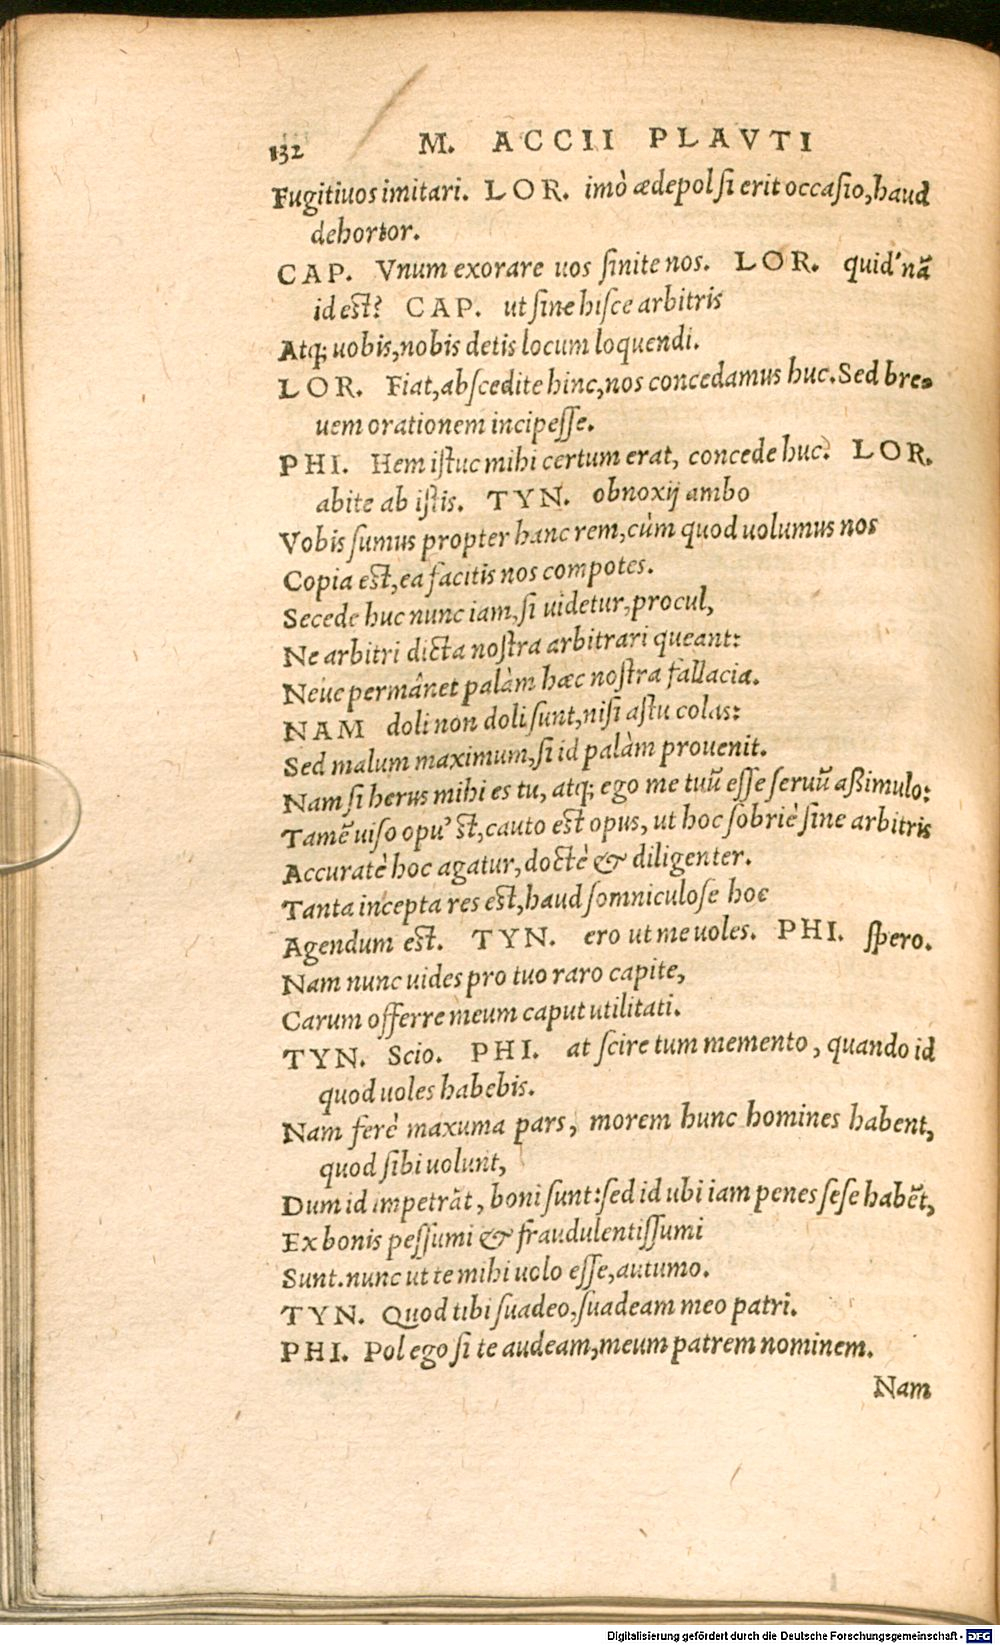 132 M. ACCII PLAVTI
Fugitiuos imitari. LOR. imò ædepol si erit occasio, haud
dehortor.
CAP. Vnum exorare uos sinite nos. LOR. quid'nã
id est? CAP. ut sine hisce arbitris
Atq; uobis, nobis detis locum loquendi.
LOR. Fiat, abscedite hinc, nos concedamus huc. Sed bre-
uem orationem incipesse.
PHI. Hem istuc mihi certum erat, concede huc? LOR.
abite ab istis. TYN. obnoxij ambo
Vobis sumus propter hanc rem, cùm quod uolumus nos
Copia est, ea facitis nos compotes.
Secede huc nunc iam, si uidetur, procul,
Ne arbitri dicta nostra arbitrari queant:
Neue permânet palàm hæc nostra fallacia.
NAM doli non doli sunt, nisi astu colas:
Sed malum maximum, si id palàm prouenit.
Nam si herus mihi es tu, atq; ego me tuũ esse seruũ aßimulo:
Tamẽ uiso opu' st, cauto est opus, ut hoc sobriè sine arbitris
Accuratè hoc agatur, doctè & diligenter.
Tanta incepta res est, haud somniculose hoc
Agendum est. TYN. ero ut me uoles. PHI. spero.
Nam nunc uides pro tuo raro capite,
Carum offerre meum caput utilitati.
TYN. Scio. PHI. at scire tum memento, quando id
quod uoles habebis.
Nam ferè maxuma pars, morem hunc homines habent,
quod sibi uolunt,
Dum id impetrãt, boni sunt: sed id ubi iam penes sese habẽt,
Ex bonis pessumi & fraudulentissumi
Sunt. nunc ut te mihi uolo esse, autumo.
TYN. Quod tibi suadeo, suadeam meo patri.
PHI. Pol ego si te audeam, meum patrem nominem.
Nam
Digitalisierung gefördert durch die Deutsche Forschungsgemeinschaft - DFG